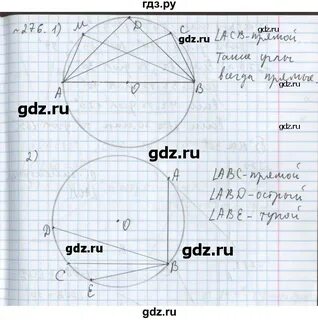 гдз.ру
№276. 1)
M D C
∠ACB-прямой.
Такие углы
всегда прямые.
A O B
gdz.ru gdz.ru
2)
A
∠ABC-прямой
∠ABD-острый
∠ABE-тупой
O
D
gdz.ru gdz.ru
C B
E
gdz.ru gdz.ru